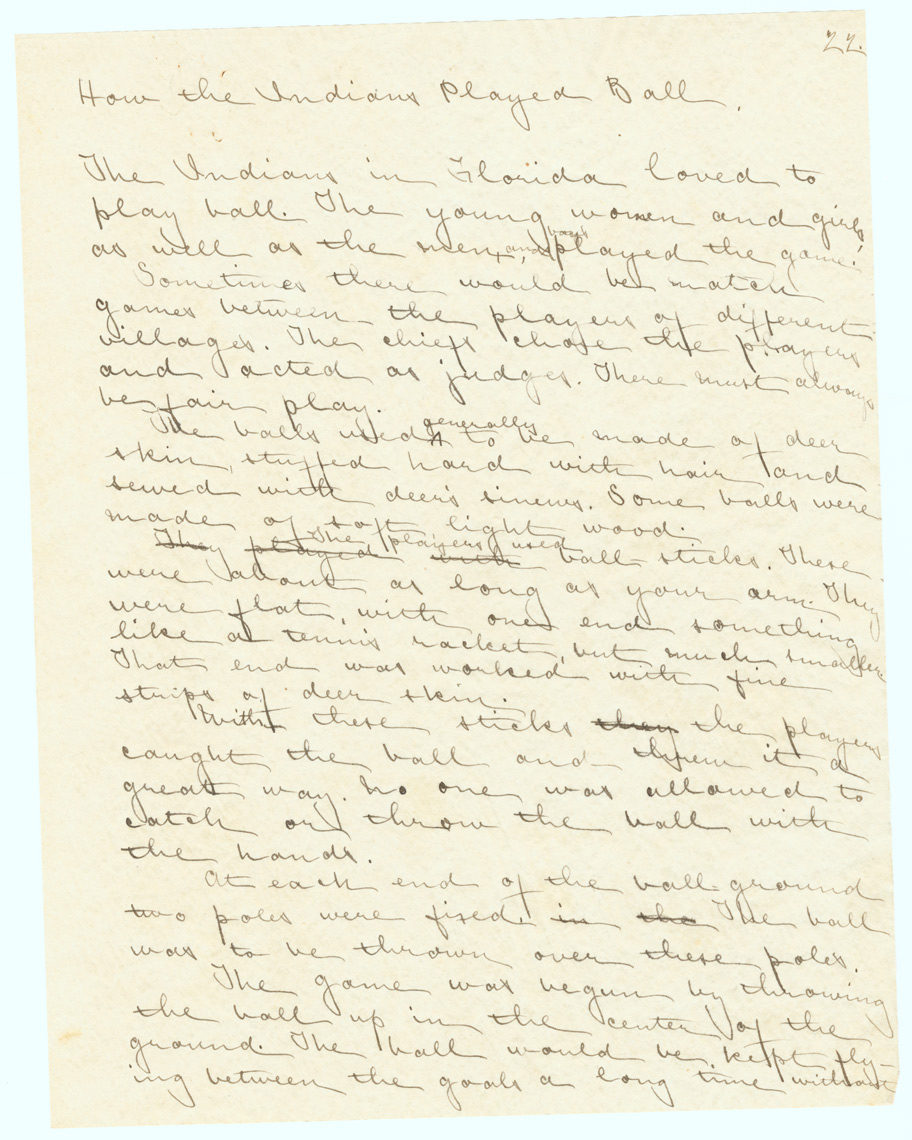 22.
How the Indians Played Ball.
The Indians in Florida loved to
play ball. The young women and girls,
as well as the men, and boys played the game.
Sometimes there would be match
games between the players of different
villages. The chiefs chose the players
and acted as judges. There must always
be fair play.
The balls used generally to be made of deer
skin, stuffed hard with hair and
sewed with deer's sinews. Some balls were
made of soft light wood.
They played with The players used ball sticks. These
were about as long as your arm. They
were flat, with one end something
like a tennis racket, but much smaller.
That end was worked with fine
strips of deer skin.
With these sticks they the players
caught the ball and threw it a
great way. No one was allowed to
catch or throw the ball with
the hands.
At each end of the ball-ground
two poles were fixed. in the The ball
was to be thrown over these poles.
The game was begun by throwing
the ball up in the center of the
ground. The ball would be kept fly-
ing between the goals a long time without